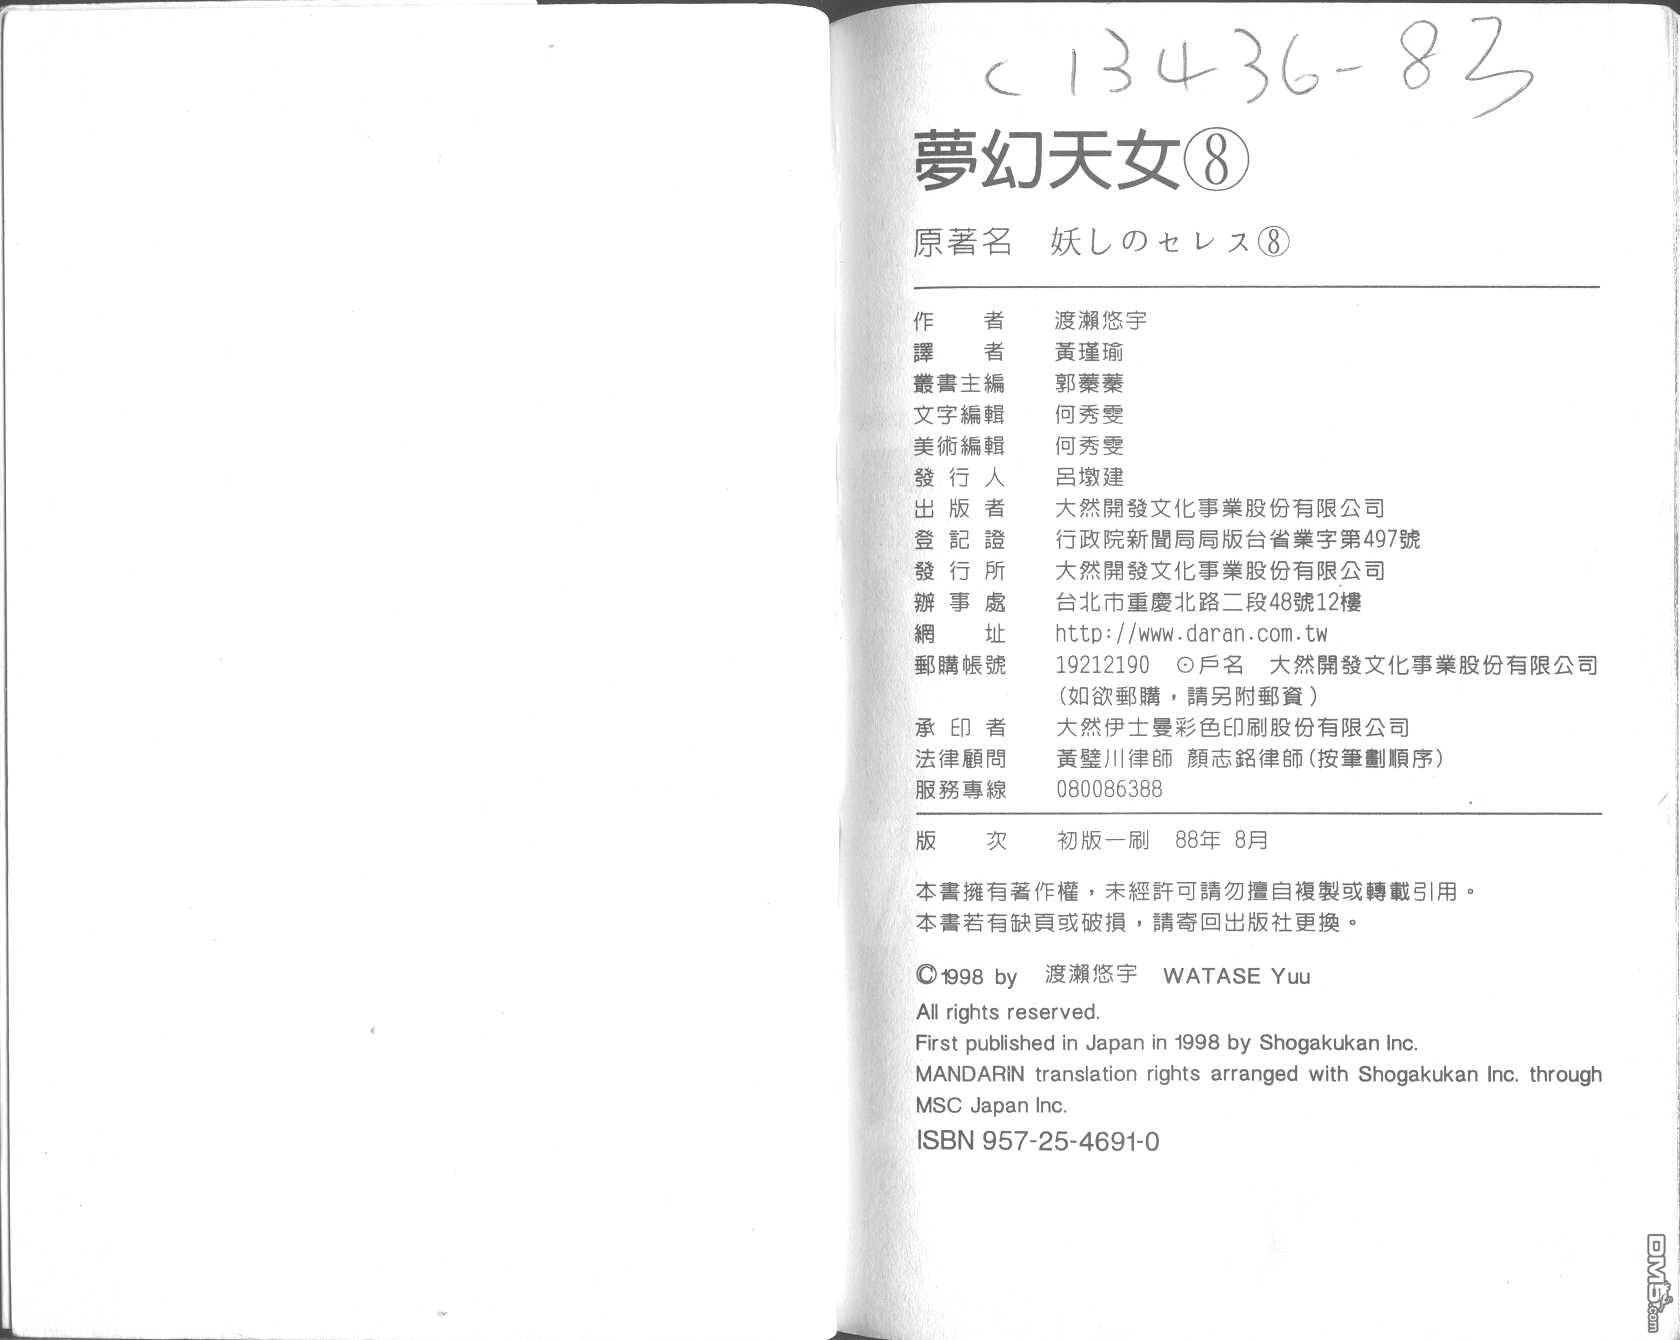 C13436-83
夢幻天女⑧
原著名 妖しのセレス⑧
作者 渡瀨悠宇
譯者 黃瑾瑜
叢書主編 郭蓁蓁
文字編輯 何秀雯
美術編輯 何秀雯
發行人 呂墩建
出版者 大然開發文化事業股份有限公司
登記證 行政院新聞局局版台省業字第497號
發行所 大然開發文化事業股份有限公司
辦事處 台北市重慶北路二段48號12樓
網址 http://www.daran.com.tw
郵購帳號 19212190 ⊙戶名 大然開發文化事業股份有限公司
(如欲郵購，請另附郵資)
承印者 大然伊士曼彩色印刷股份有限公司
法律顧問 黃璧川律師 顏志銘律師(按筆劃順序)
服務專線 080086388
版次 初版一刷 88年 8月
本書擁有著作權，未經許可請勿擅自複製或轉載引用。
本書若有缺頁或破損，請寄回出版社更換。
©1998 by 渡瀨悠宇 WATASE Yuu
All rights reserved.
First published in Japan in 1998 by Shogakukan Inc.
MANDARIN translation rights arranged with Shogakukan Inc. through
MSC Japan Inc.
ISBN 957-25-4691-0
DM5.com